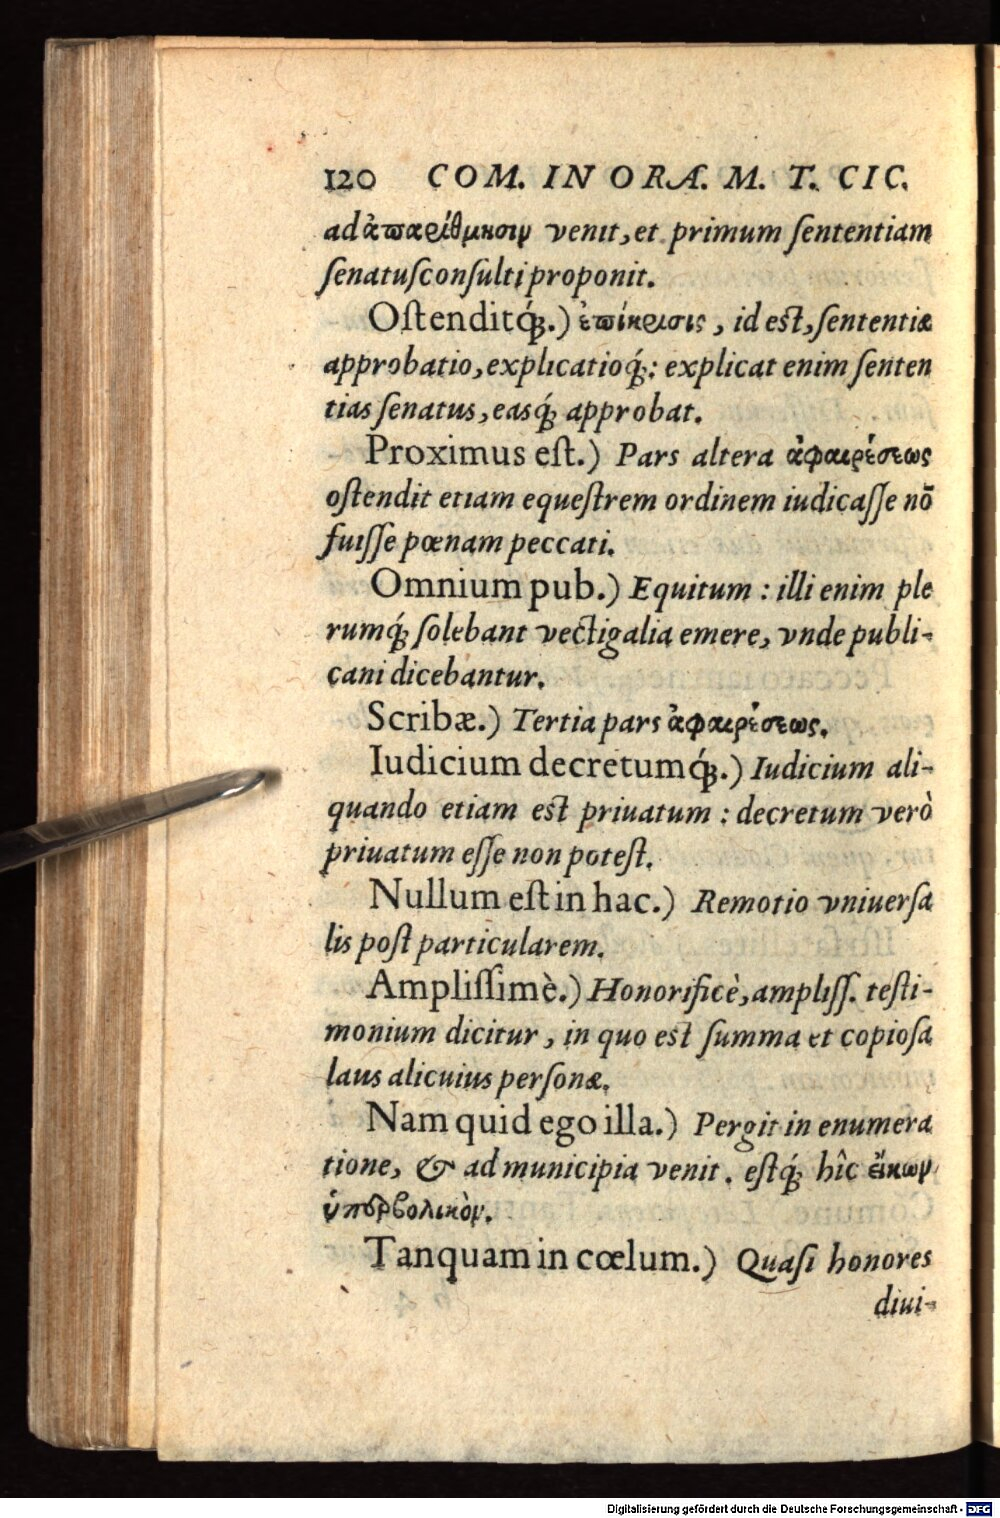 120 COM. IN ORÆ. M. T. CIC.
ad ἀπαρίθμησιν venit, et primum ſententiam
ſenatuſconſulti proponit.
Oſtenditq́;.) ἐπίκρισις, id eſt, ſententiæ
approbatio, explicatioq́;: explicat enim ſenten
tias ſenatus, easq́; approbat.
Proximus eſt.) Pars altera ἀφαιρέσεως
oſtendit etiam equeſtrem ordinem iudicaſſe nō
fuiſſe pœnam peccati.
Omnium pub.) Equitum: illi enim ple
rumq́; ſolebant vectigalia emere, vnde publi-
cani dicebantur.
Scribæ.) Tertia pars ἀφαιρέσεως.
Iudicium decretumq́;.) Iudicium ali-
quando etiam eſt priuatum: decretum verò
priuatum eſſe non poteſt.
Nullum eſt in hac.) Remotio vniuerſa
lis poſt particularem.
Ampliſſimè.) Honorificè, ampliſſ. teſti-
monium dicitur, in quo eſt ſumma et copioſa
laus alicuius perſonæ.
Nam quid ego illa.) Pergit in enumera
tione, & ad municipia venit. eſtq́; hîc εἴκων
ὑπερβολικὸν.
Tanquam in cœlum.) Quaſi honores
diui-
Digitalisierung gefördert durch die Deutsche Forschungsgemeinschaft - DFG